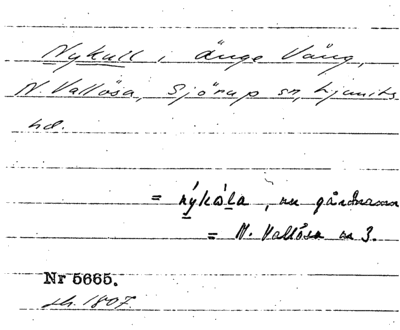 Nykull, änge Väng,
N. Vallösa, Sjörup sn, Ljunits
hd.
= nýkùla, nu gårdnamn
= N. Vallösa nr 3.
Nr 5665.
sk. 1807.